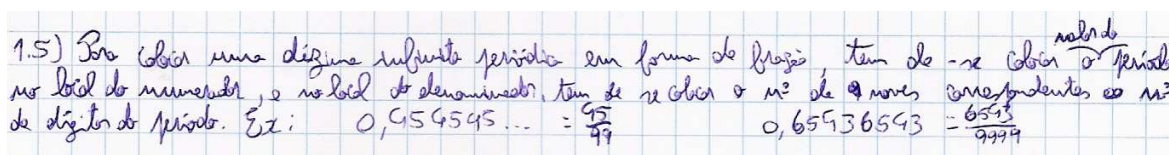 1.5) Para colocar uma dízima infinita periódica em forma de fração, tem de -se colocar o valor do período
no local do numerador, e no local do denominador, tem de se colocar o nº de noves correspondentes ao nº
de dígitos do período. Ex: 0,454545... = 45/99 0,65436543 = 6543/9999